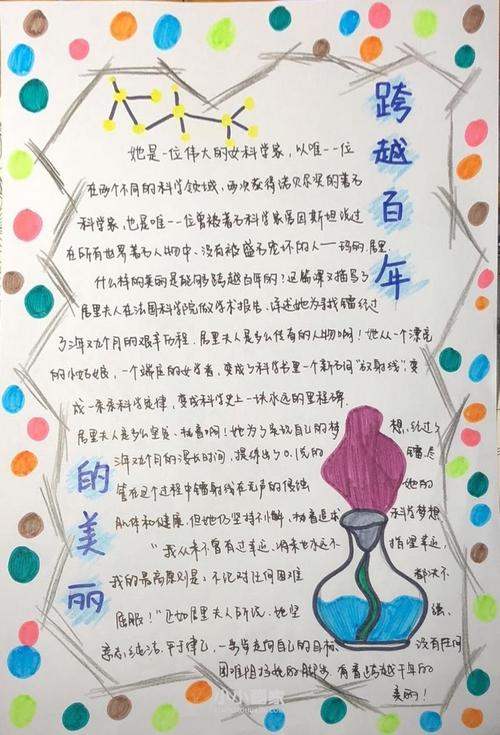 跨越百年
的美丽
她是一位伟大的女科学家，以唯一一位
在两个不同的科学领域，两次获得诺贝尔奖的著名
科学家，也是唯一一位曾被著名科学家爱因斯坦说过
在所有世界著名人物中，没有被盛名宠坏的人——玛丽.居里.
什么样的美丽是能够跨越百年的？这篇课文描写了
居里夫人在法国科学院做学术报告，详述她为寻找镭经过
了3年又9个月的艰辛历程，居里夫人是多么传奇的人物啊！她从一个漂亮
的小姑娘，一个端庄的女学者，变成了科学书里一个新名词“放射线”，变
成一条条科学定律，变成科学史上一块永远的里程碑.
居里夫人是多么坚定、执着啊！她为了实现自己的梦想，经过了
3年又9个月的漫长时间，提炼出了0.1克的镭，尽
管在这个过程中镭射线在无声的侵蚀她的
身体和健康，但她仍坚持不懈，执着追求科学梦想
“我从来不曾有过幸运，将来也永远不指望幸运，
我的最高原则是：不论对任何困难都决不
屈服！”正如居里夫人所说，她坚强、
意志纯洁、严于律己，一步步走向自己的目标，没有任何
困难阻挡她的脚步，有着跨越千年的
美丽！
小小画家